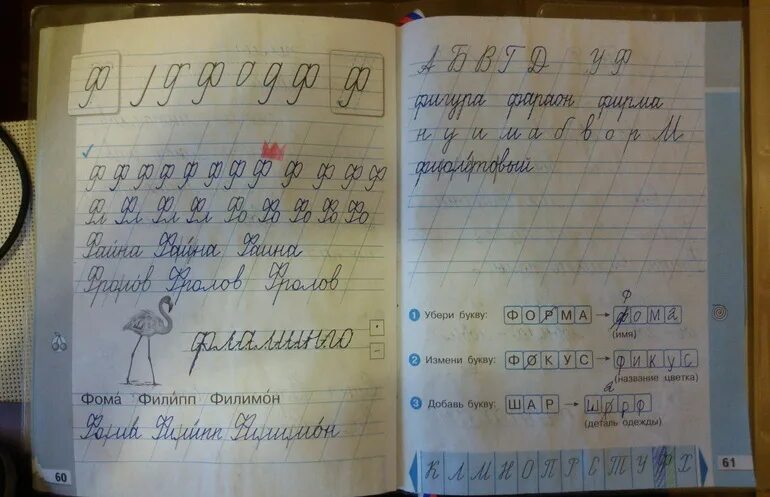 Ф Ф О Ф Ф Ф
Ф Ф Ф Ф Ф Ф Ф Ф Ф Ф Ф Ф
Фл Фл Фл Фл Фо Фо Фо Фо Фо
Фаина Фаина Фаина
Фролов Фролов Фролов
фламинго
Фома́ Фили́пп Филимо́н
Фома́ Фили́пп Филимо́н
60
А Б В Г Д У Ф
фигура фараон фирма
н у и м а б в о р м
фиолетовый
1 Убери букву: ФОРМА → фома
ф
(имя)
2 Измени букву: ФОКУС → фикус
(название цветка)
а
3 Добавь букву: ШАР → шарф
(деталь одежды)
К Л М Н О П Р С Т У Ф Х
61